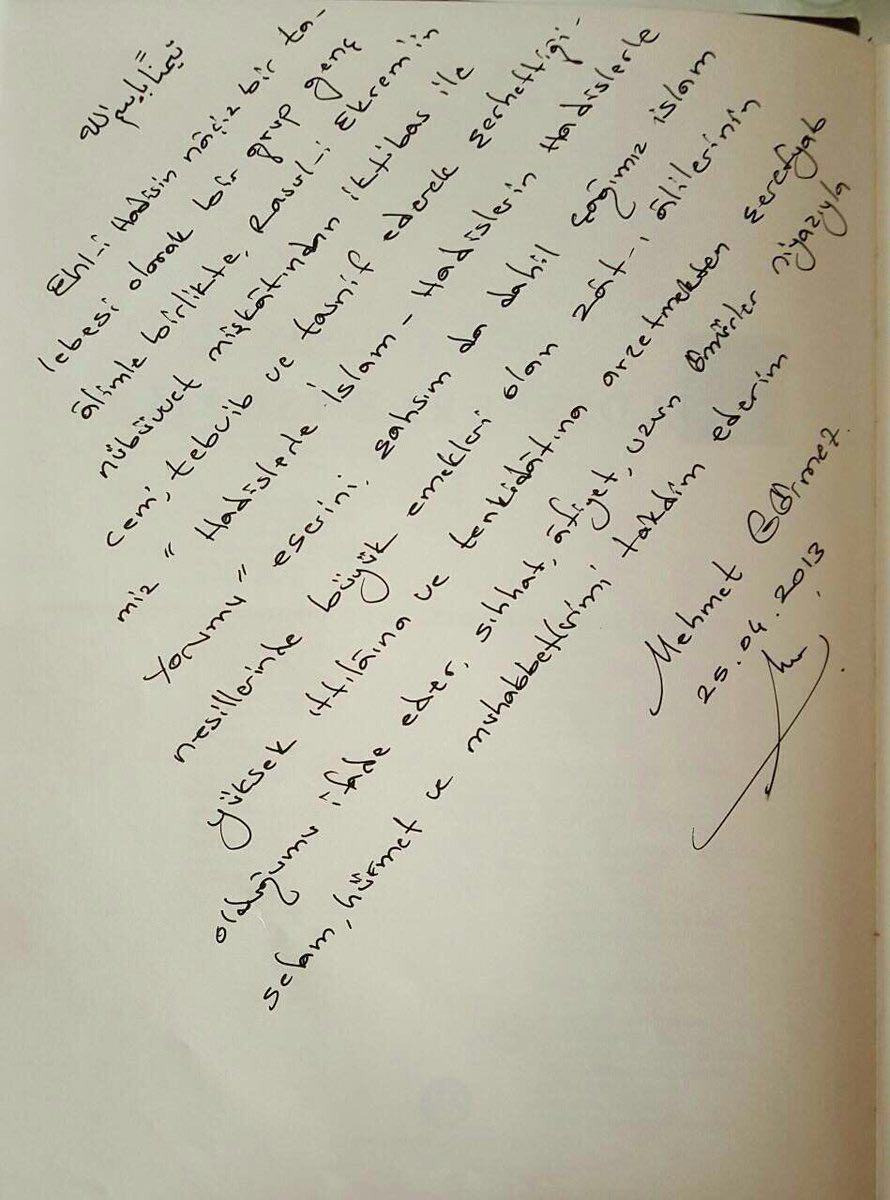 تيمنًا باسم الله
Ehl-i Hadisin nâçiz bir ta-
lebesi olarak bir grup genç
âlimle birlikte, Rasul-i Ekrem'in
nübüvvet mişkâtından iktibas ile
cem', tebvib ve tasnif ederek şerhettiği-
miz "Hadislerle İslam - Hadislerin Hadislerle
Yorumu" eserini, şahsım da dahil çağımız islam
nesillerinde büyük emekleri olan zât-ı âlilerinin
yüksek ıttılâına ve tenkidâtına arzetmekten şerefyab
olduğumu ifade eder, sıhhat, âfiyet, uzun ömürler niyazıyla
selam, hürmet ve muhabbetlerimi takdim ederim
Mehmet Görmez
25.04.2013